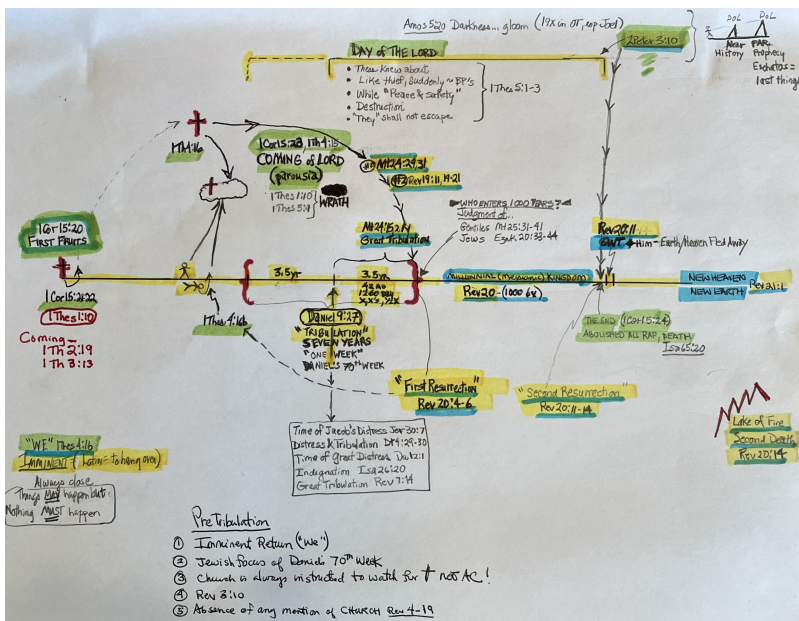 Amos 5:20 Darkness... gloom (19x in OT, esp Joel)
2 Peter 3:10
DOL DOL
Near FAR
History Prophecy
Eschatos =
last things
DAY OF THE LORD
• Thess Knew about
• Like thief, Suddenly ~ BP's
• While "Peace & safety"
• Destruction
• "They" shall not escape
1 Thes 5:1-3
1 Th 4:16
1 Cor 15:23, 1 Th 4:15
COMING of LORD
(parousia)
1 Thes 1:10
1 Thes 5:9
WRATH
#1 Mt 24:29,31
#2 Rev 19:11, 19-21
WHO ENTERS 1000 YEARS?
Judgment of...
Gentiles Mt 25:31-41
Jews Ezek 20:33-44
Great Tribulation
Rev 20:11
GWT Him - Earth/Heaven Fled Away
1 Cor 15:20
FIRST FRUITS
1 Cor 15:20,22
1 Thes 1:10
Coming -
1 Th 2:19
1 Th 3:13
3.5 yr
3.5 yr
42 mo
1260 days
MILLENNIAL KINGDOM
Rev 20 - (1000 6x)
NEW HEAVEN
NEW EARTH
Rev 21:1
1 Thes 4:16
Daniel 9:27
"TRIBULATION"
SEVEN YEARS
"ONE WEEK"
DANIEL'S 70th WEEK
THE END (1 Cor 15:24)
ABOLISHED ALL RAP, DEATH
Isa 65:20
"First Resurrection"
Rev 20:4-6
"Second Resurrection"
Rev 20:11-14
Lake of Fire
Second Death
Rev 20:14
Time of Jacob's Distress Jer 30:7
Distress & Tribulation Dt 4:29-30
Time of Great Distress Da 12:1
Indignation Isa 26:20
Great Tribulation Rev 7:14
"WE" 1 Thes 4:16
IMMINENT (Latin = to hang over)
Always close
Things MAY happen but
Nothing MUST happen
PreTribulation
① Imminent Return ("We")
② Jewish focus of Daniel's 70th Week
③ Church is always instructed to watch for † not AC!
④ Rev 3:10
⑤ Absence of any mention of CHURCH Rev 4-19